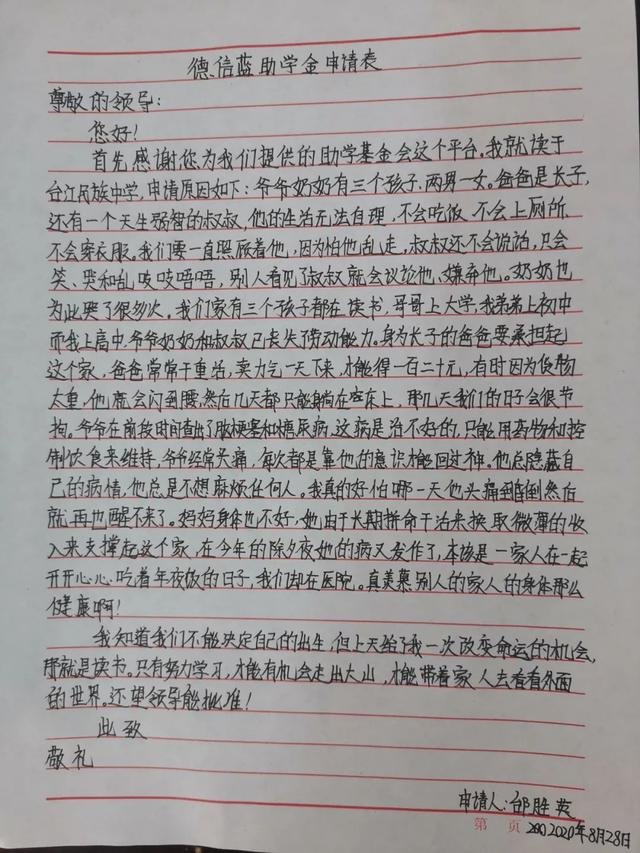 德信蓝助学金申请表
尊敬的领导：
您好！
首先感谢您为我们提供的助学基金会这个平台。我就读于
台江民族中学，申请原因如下：爷爷奶奶有三个孩子，两男一女。爸爸是长子，
还有一个天生弱智的叔叔，他的生活无法自理，不会吃饭 不会上厕所
不会穿衣服。我们要一直照顾着他，因为怕他乱走，叔叔还不会说话，只会
笑、哭和乱吱吱唔唔，别人看见了叔叔就会议论他、嫌弃他。奶奶也
为此哭了很多次，我们家有三个孩子都在读书，哥哥上大学，我弟弟上初中
而我上高中，爷爷奶奶和叔叔已丧失劳动能力。身为长子的爸爸要承担起
这个家，爸爸常常干重活，卖力气一天下来，才能得一百二十元，有时因为货物
太重，他就会闪到腰，然后几天都只能躺在床上，那几天我们的日子会很节
拘。爷爷在前段时间查出了脑梗塞和糖尿病，这病是治不好的，只能用药物和控
制饮食来维持，爷爷经常头痛，每次都是靠他的意识才能回过神。他总隐蔽自
己的病情，他总是不想麻烦任何人。我真的好怕哪一天他头痛到昏倒然后
就再也醒不来了。妈妈身体也不好，她由于长期拼命干活来换取微薄的收
入来支撑起这个家，在今年的除夕夜她的病又发作了，本该是一家人在一起
开开心心吃着年夜饭的日子，我们却在医院。真羡慕别人的家人的身体那么
健康啊！
我知道我们不能决定自己的出生，但上天给了我一次改变命运的机会，
那就是读书。只有努力学习，才能有机会走出大山，才能带着家人去看看外面
的世界。还望领导能批准！
此致
敬礼
申请人：邰胜英
第 页 2020年8月28日